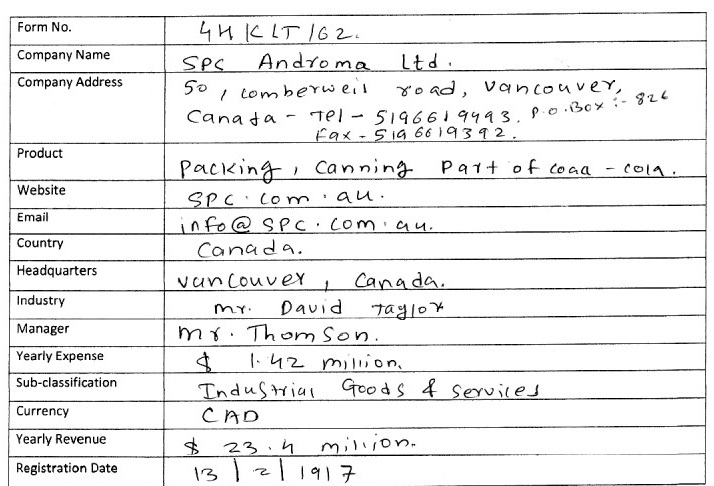 Form No. 4HKLT162.
Company Name SPC Androma Ltd.
Company Address 50, comberweil road, vancouver,
Canada - Tel - 5196619493. P.O.Box :- 826
Fax - 5196619392.
Product Packing, Canning Part of coaa - cola.
Website SPC.com.au.
Email info@SPC.com.au.
Country Canada.
Headquarters vancouver, Canada.
Industry mr. David Taylor
Manager Mr. Thomson.
Yearly Expense $ 1.42 million.
Sub-classification Industrial Goods & Services
Currency CAD
Yearly Revenue $ 23.4 million.
Registration Date 13/2/1917